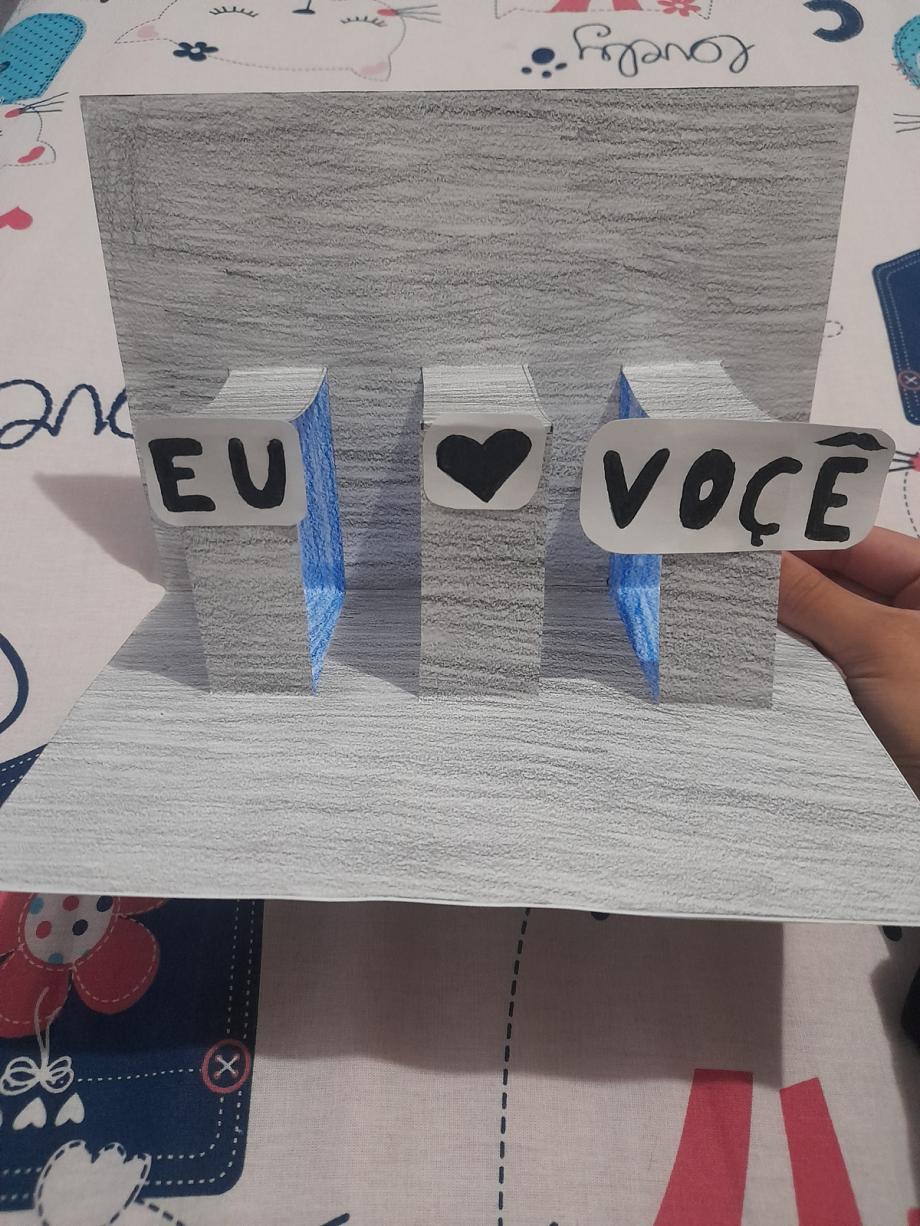 lovely
EU ♥ VOÇÊ